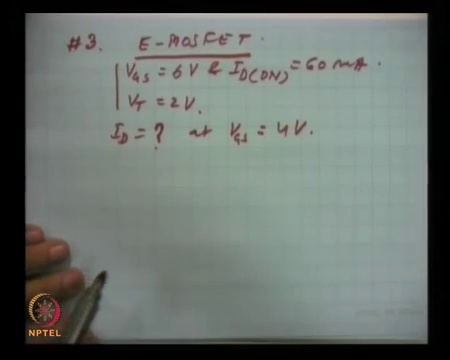 #3. E-MOSFET.
V_GS = 6 V & I_D(ON) = 60 mA.
V_T = 2 V.
I_D = ? at V_GS = 4 V.
NPTEL